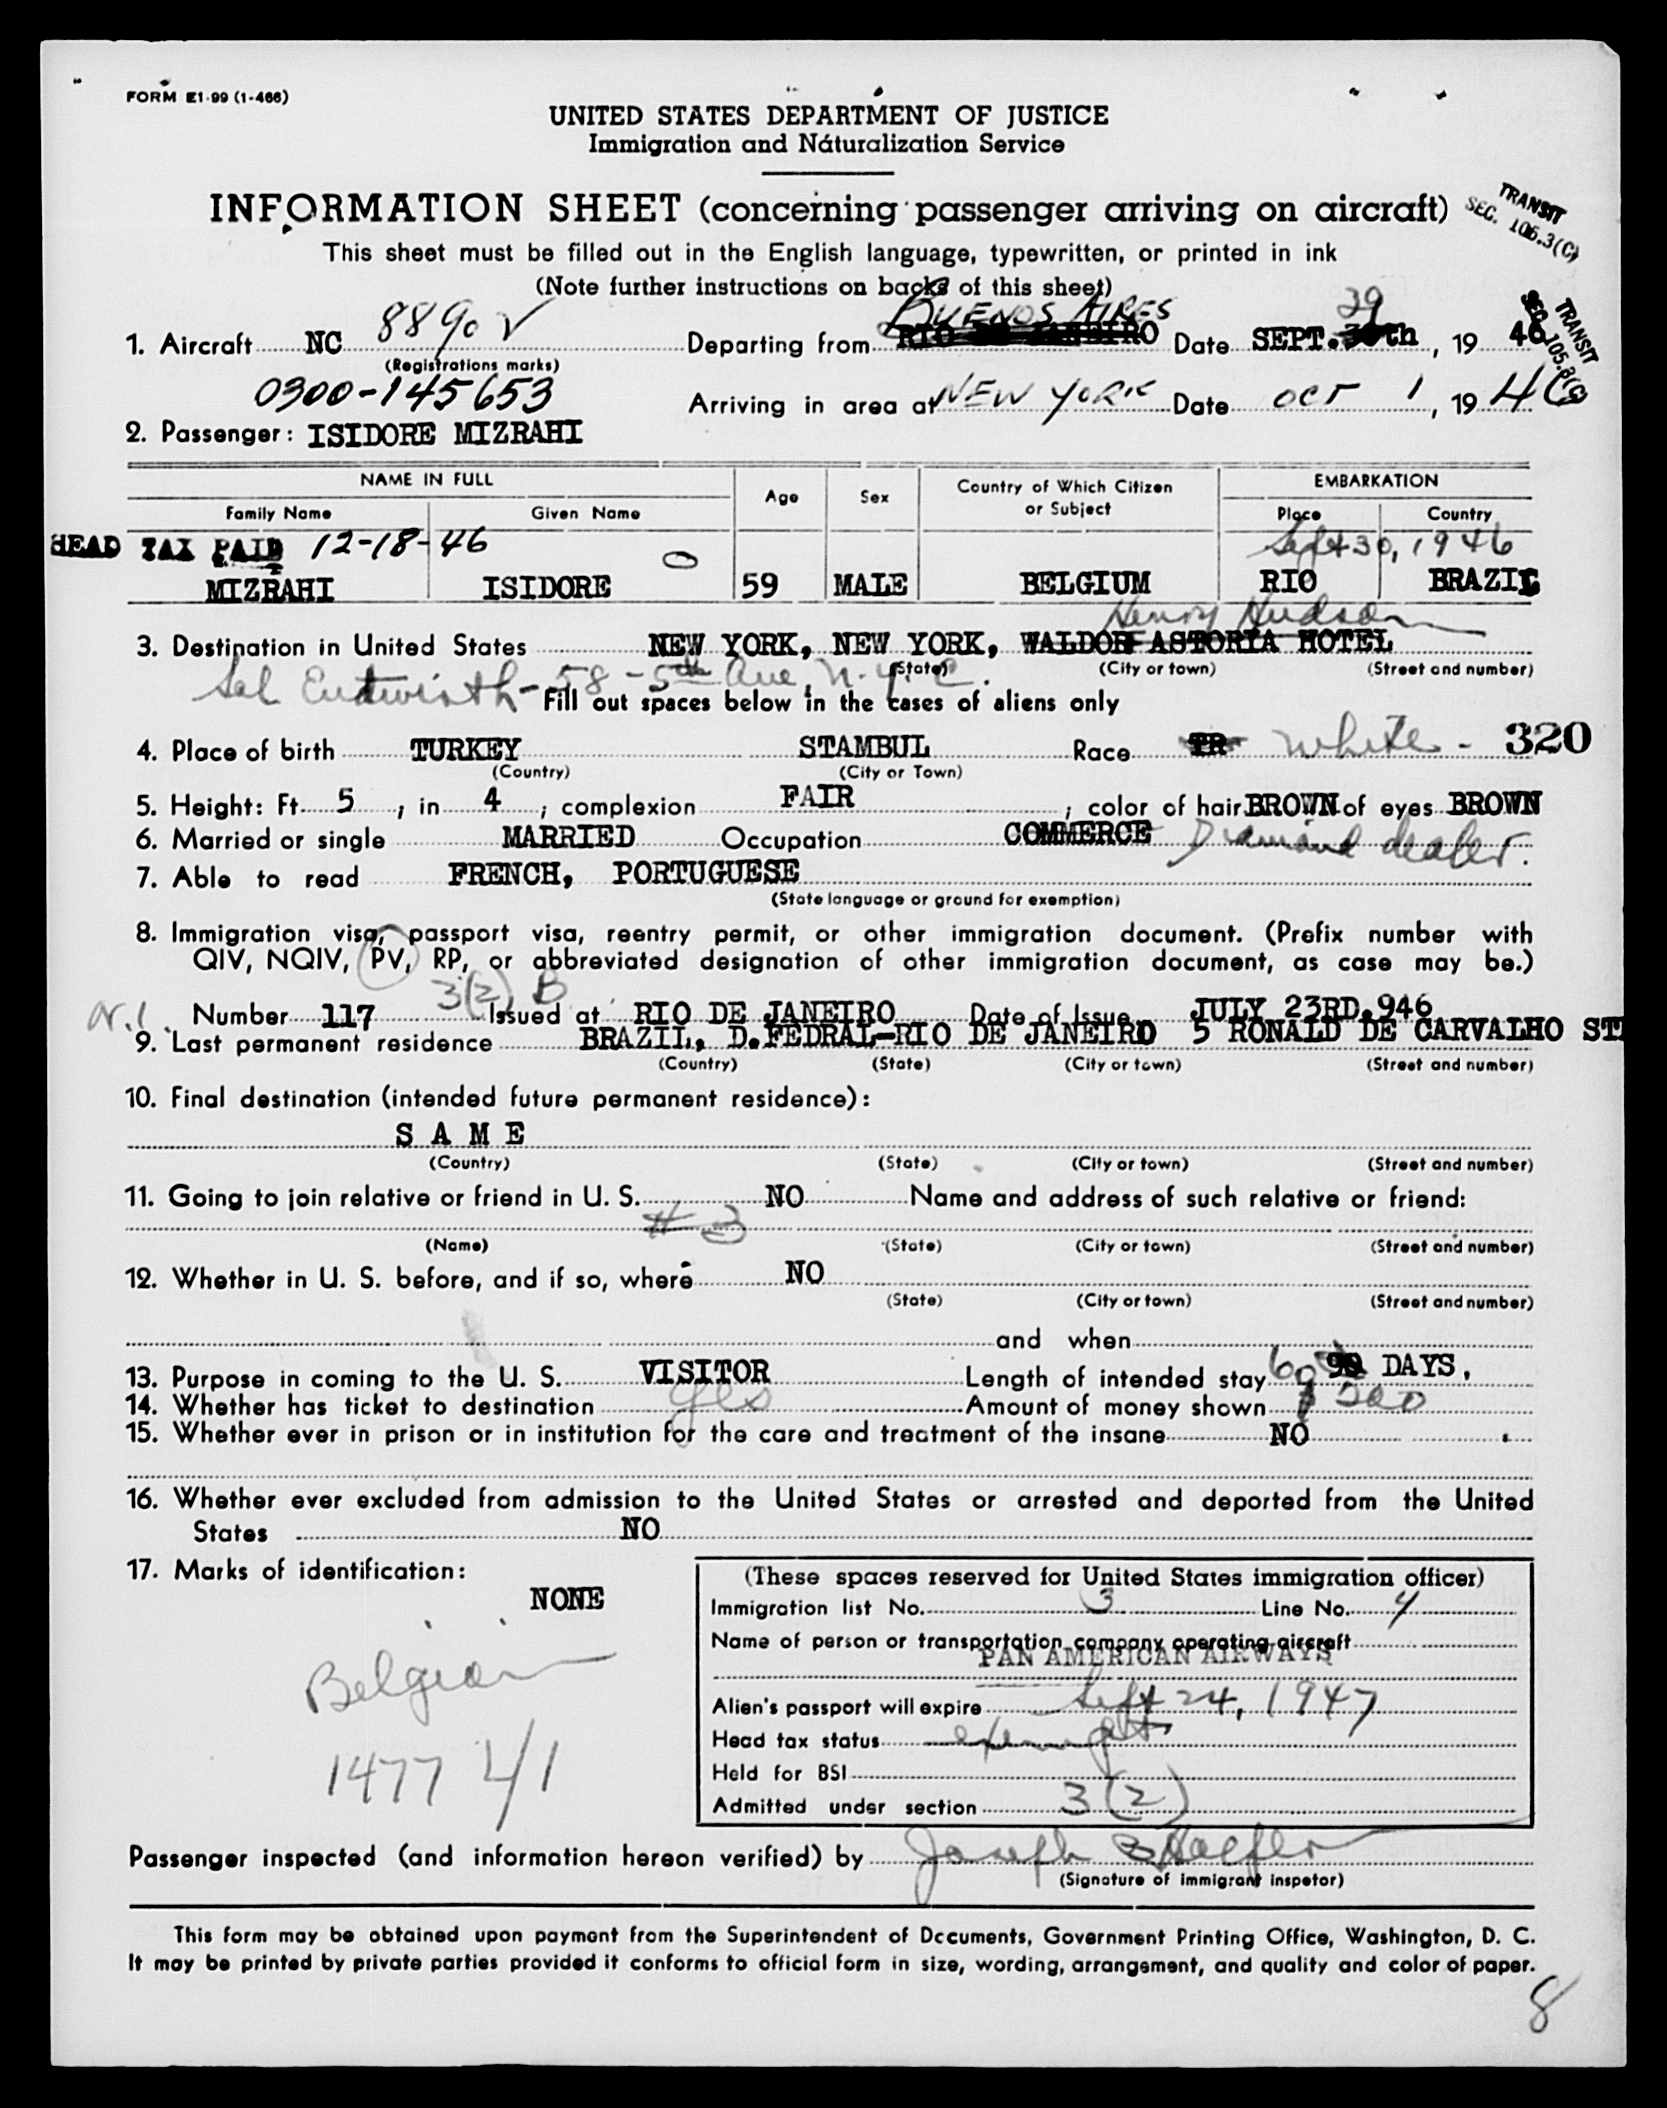 FORM E1-99 (1-466)
UNITED STATES DEPARTMENT OF JUSTICE
Immigration and Naturalization Service
INFORMATION SHEET (concerning passenger arriving on aircraft)
TRANSIT
SEC. 105.3(C)
This sheet must be filled out in the English language, typewritten, or printed in ink
(Note further instructions on backs of this sheet)
BUENOS AIRES 29
1. Aircraft NC 8890 V Departing from RIO DE JANEIRO Date SEPT. 30th, 19 46
TRANSIT
SEC. 105.3(C)
(Registrations marks)
0300-145653 Arriving in area at NEW YORK Date OCT 1, 19 46
2. Passenger: ISIDORE MIZRAHI
NAME IN FULL Age Sex Country of Which Citizen or Subject EMBARKATION
Family Name Given Name Place Country
HEAD TAX PAID 12-18-46 Sept 30, 1946
MIZRAHI ISIDORE 59 MALE BELGIUM RIO BRAZIL
Henry Hudson
3. Destination in United States NEW YORK, NEW YORK, WALDOR ASTORIA HOTEL
(State) (City or town) (Street and number)
Sol - 58 - 5th Ave. N.Y.C.
Fill out spaces below in the cases of aliens only
4. Place of birth TURKEY STAMBUL Race White - 320
(Country) (City or Town)
5. Height: Ft. 5, in 4; complexion FAIR; color of hair BROWN of eyes BROWN
6. Married or single MARRIED Occupation COMMERCE Diamond dealer.
7. Able to read FRENCH, PORTUGUESE
(State language or ground for exemption)
8. Immigration visa, passport visa, reentry permit, or other immigration document. (Prefix number with
QIV, NQIV, PV, RP, or abbreviated designation of other immigration document, as case may be.)
3(2) B
Number 117 Issued at RIO DE JANEIRO Date of Issue JULY 23RD.946
9. Last permanent residence BRAZIL, D.FEDRAL-RIO DE JANEIRO 5 RONALD DE CARVALHO ST
(Country) (State) (City or town) (Street and number)
10. Final destination (intended future permanent residence):
S A M E
(Country) (State) (City or town) (Street and number)
11. Going to join relative or friend in U. S. NO Name and address of such relative or friend:
# 3
(Name) (State) (City or town) (Street and number)
12. Whether in U. S. before, and if so, where NO
(State) (City or town) (Street and number)
and when
13. Purpose in coming to the U. S. VISITOR Length of intended stay 60 90 DAYS.
14. Whether has ticket to destination yes Amount of money shown $ 500
15. Whether ever in prison or in institution for the care and treatment of the insane NO
16. Whether ever excluded from admission to the United States or arrested and deported from the United
States NO
17. Marks of identification:
NONE
Belgian
1477 4/1
(These spaces reserved for United States immigration officer)
Immigration list No. 3 Line No. 4
Name of person or transportation company operating aircraft
PAN AMERICAN AIRWAYS
Alien's passport will expire Sept 24, 1947
Head tax status exempt
Held for BSI
Admitted under section 3(2)
Passenger inspected (and information hereon verified) by Joseph
(Signature of immigrant inspetor)
This form may be obtained upon payment from the Superintendent of Documents, Government Printing Office, Washington, D. C.
It may be printed by private parties provided it conforms to official form in size, wording, arrangement, and quality and color of paper.
8